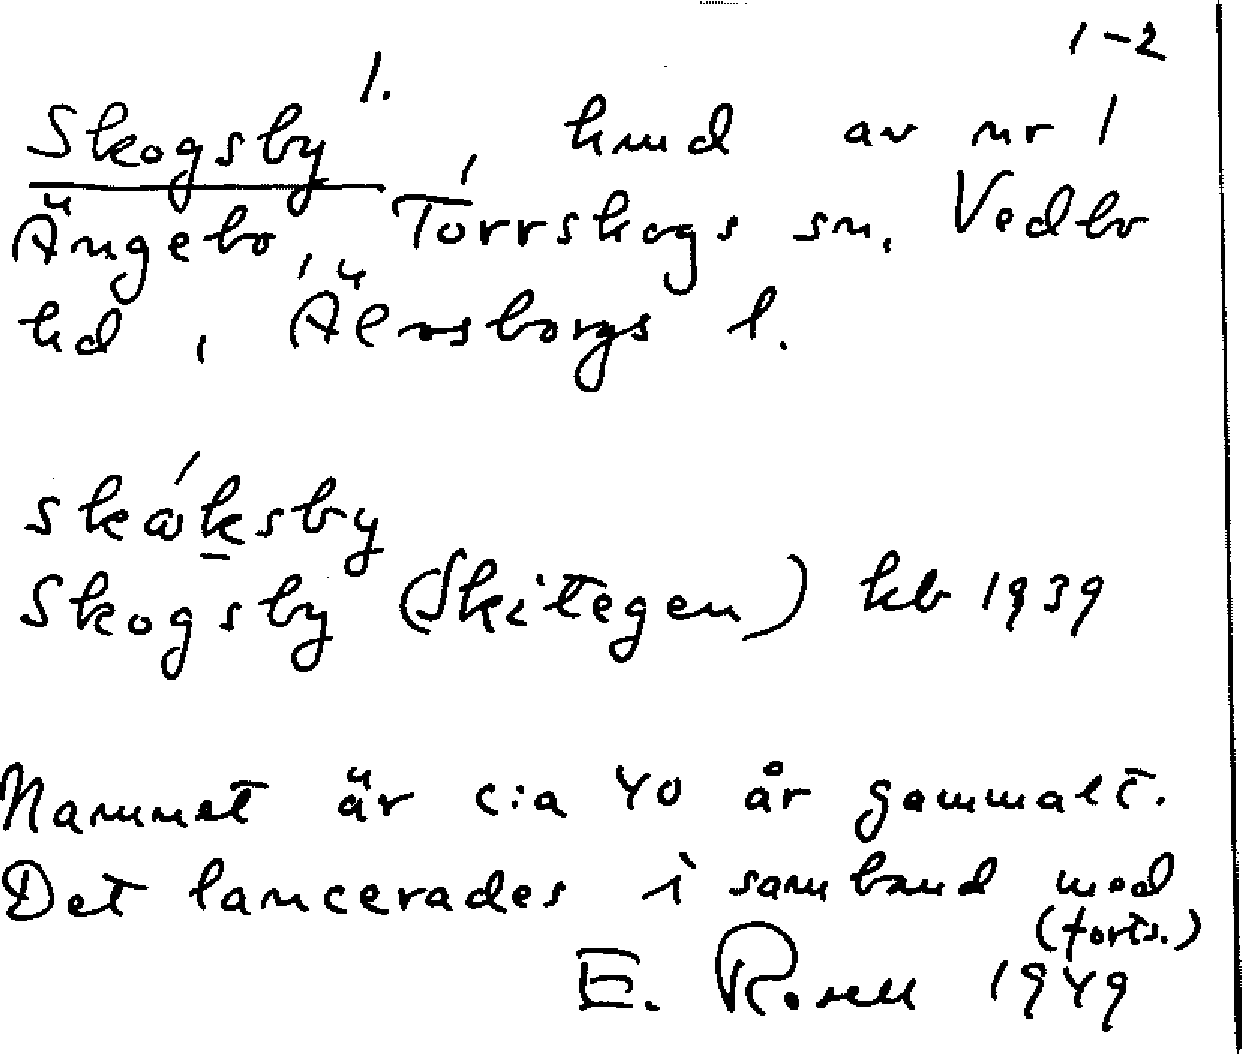 1-2
Skogsby 1., hmd av nr 1
Ängebo, Torrskogs sn, Vedbo
hd, Älvsborgs l.
skǻksby
Skogsby (Skitegen) kb 1939
Namnet är c:a 40 år gammalt.
Det lancerades i samband med
(forts.)
E. Rosell 1949